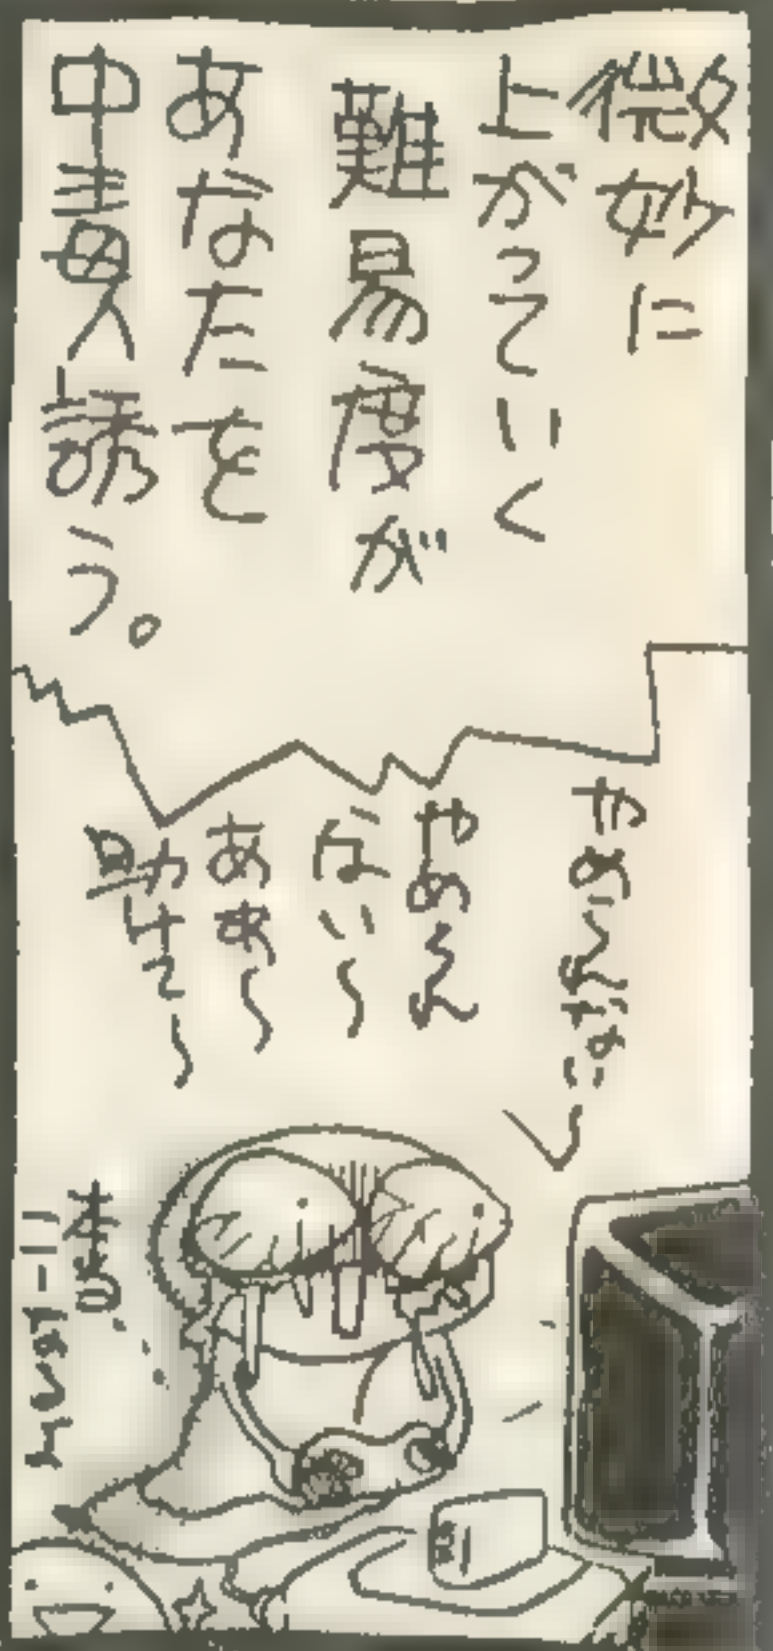 微妙に
上がっていく
難易度が
あなたを
中毒へ誘う。
やめらんない〜
やめらん
ない〜
ああ〜
助けて〜